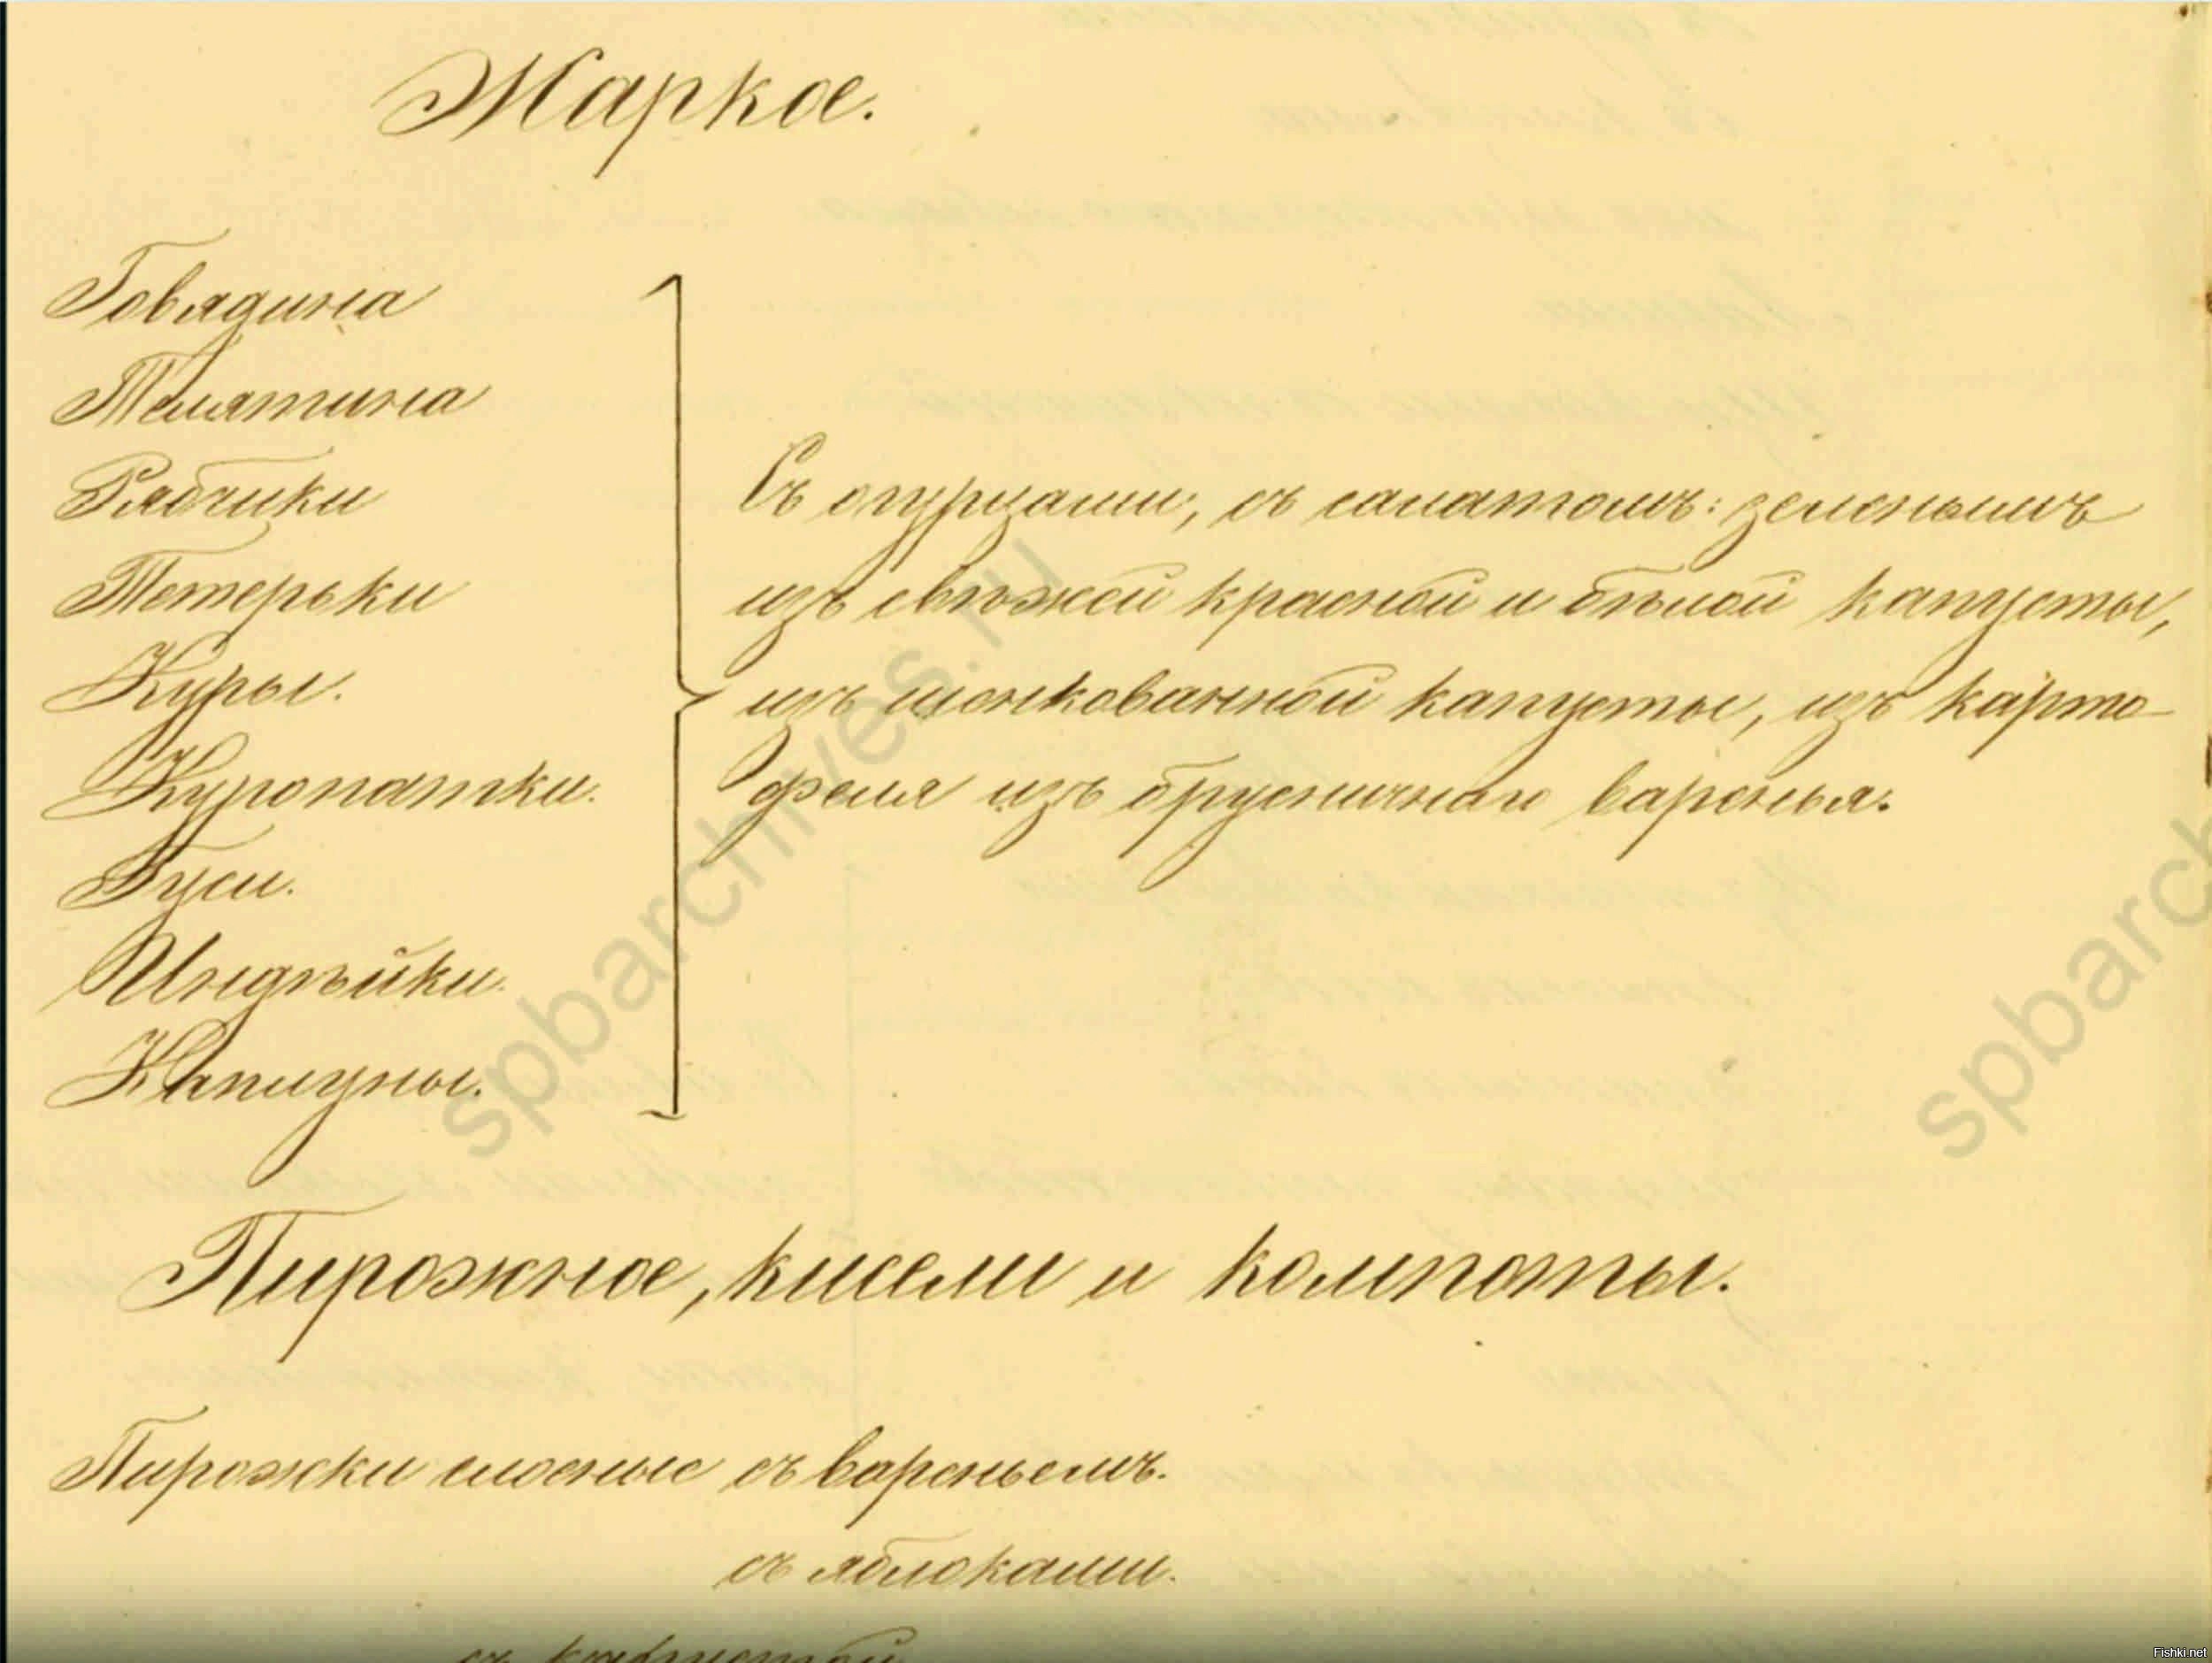 Жаркое.
Говядина
Телятина
Рябчики
Тетерьки
Куры.
Куропатки.
Гуси.
Индѣйки.
Каплуны.
Съ огурцами, съ салатомъ: зеленымъ
изъ свѣжей красной и бѣлой капусты,
изъ шинкованной капусты, изъ карто-
феля изъ брусничнаго варенья.
Пирожное, кисели и компоты.
Пирожки слоеные съ вареньемъ.
съ яблоками.
съ
spbarchives.ru
spbarch
Fishki.net